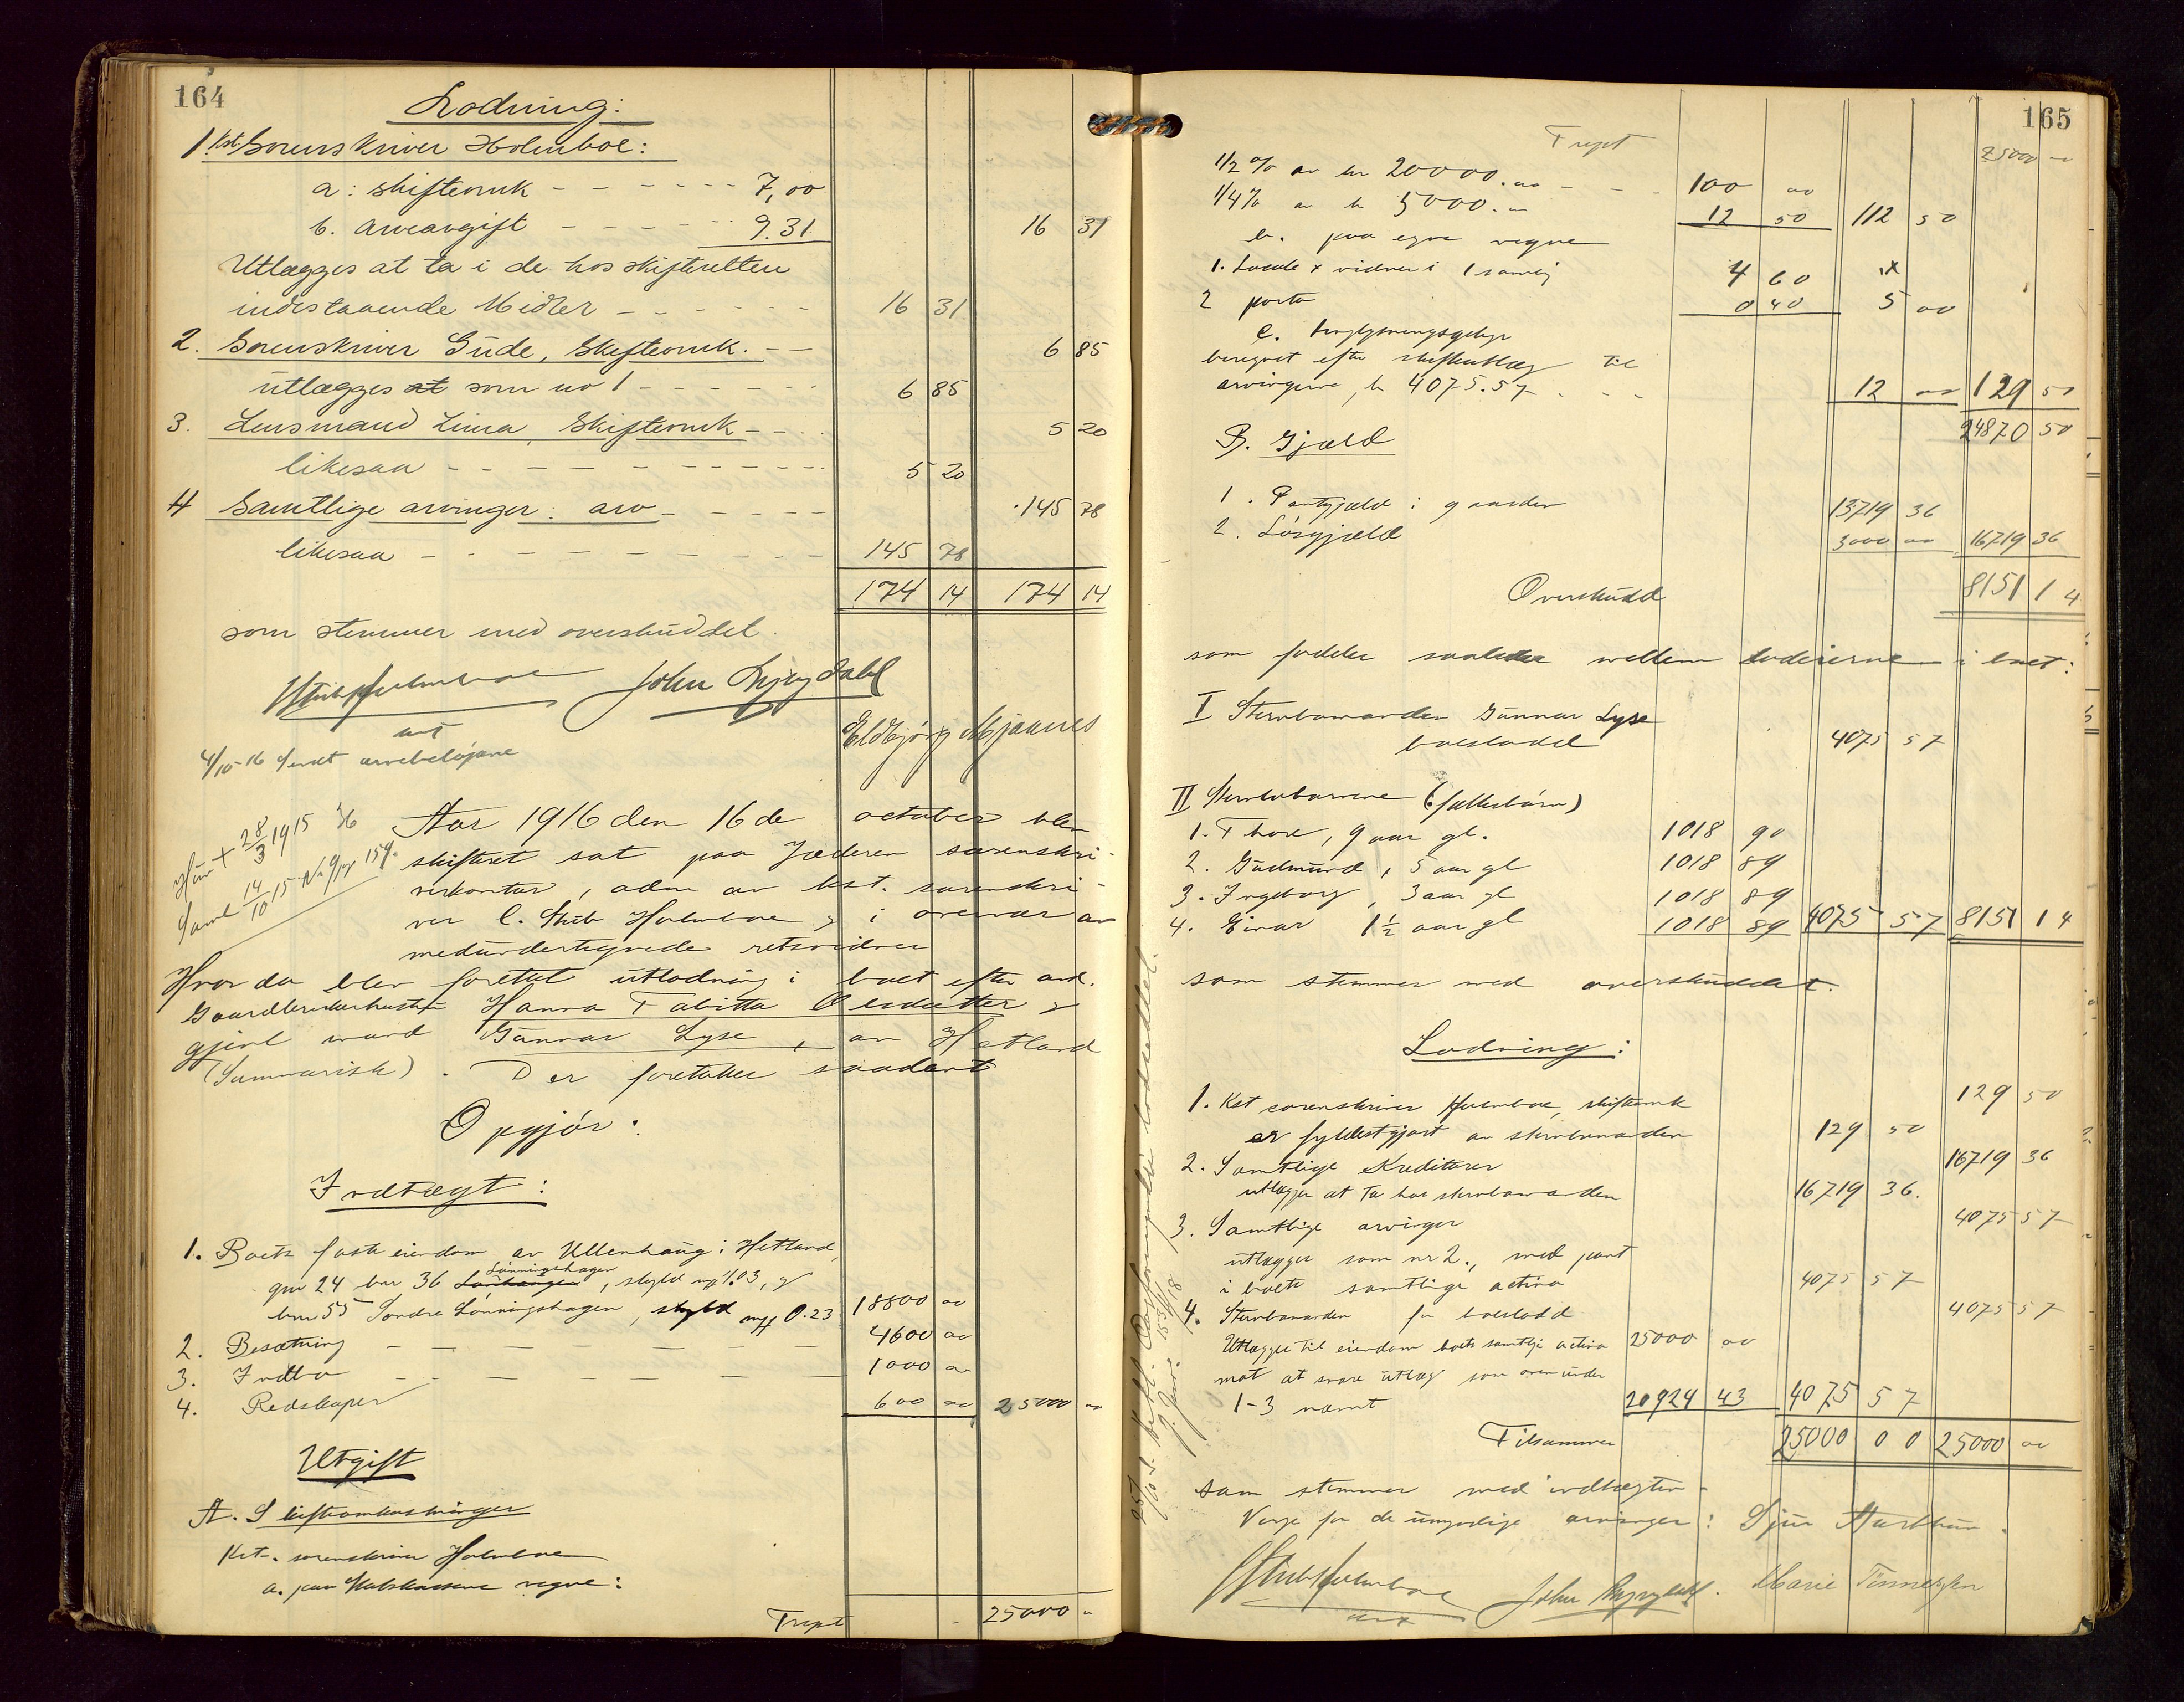 164
Lodning:
1. Kst. Sorenskriver Holmboe:
a: skifteomk - - - - - - 7,00
b. arveavgift - - - - - 9.31 16 31
Utlægges at ta i de hos skifteretten
indestaaende Midler - - - - - - 16 31
2. Sorenskriver Gude, Skifteomk. - - 6 85
utlægges at som no 1 - - - - - - 6 85
3. Lensmand Lima, Skifteomk - - - 5 20
likesaa - - - - - - - - - 5 20
4 Samtlige arvinger: arv - - - - - 145 78
likesaa - - - - - - - - - 145 78
174 14 174 14
som stemmer med overskuddet.
Stub Holmboe John Lyngdahl
cst Eldbjørg Mjaanes
4/10-16 sendt arvebeløpene
Hun + 28/3 1915 36
Saml 14/10 15 No 9 pg 159.
Aar 1916 den 16de october blev
skifteret sat paa Jæderen sorenskri-
verkontor, adm av kst. sorenskri-
ver C. Stub Holmboe og i overvær av
medundertegnede retsvidner
Hvor da blev foretat utlodning i boet efter avd.
Gaardbrukerhustru Hanna Tabitta Olsdatter og
gjenl mand Gunnar Lyse, av Hetland
(Summarisk). Der foretokes saadant
Opgjør:
Indtægt:
1. Boets faste eiendom av Ullenhaug i Hetland,
gnr 24 bnr 36 Lønningshagen, skyld mrk 1.03, og
bnr 55 Søndre Lønningshagen, skyld mrk 0.23 18800 00
2. Besætning - - - - - - 4600 00
3. Indbo - - - - - - 1000 00
4. Redskaper 600 00 25000 00
Utgift
A. Skifteomkostninger
Kst. sorenskriver Holmboe
a. paa Statskassens vegne:
Trspt 25000 -
165
Trspt 25000 00
1/2 % av kr 20000.00 - - - 100 00
1/4 % av kr 5000.00 12 50 112 50
b. paa egne vegne
1. Locale & vidner i 1 samlg 4 60
2 porto 0 40 5 00
c. tinglysningsgebyr
beregnet efter skifteutlæg til
arvingerne, kr 4075.57 - - - 12 00 129 50
24870 50
B. Gjæld
1. Pantgjæld i gaarden 13719 36
2. Løsgjæld 3000 00 16719 36
Overskudd 8151 14
som fordeles saaledes mellem lodeierne i boet:
I Stervbomanden Gunnar Lyse
boeslodd 4075 57
II Stervbobarnene (fællesbørn)
1. Thore, 9 aar gl. 1018 90
2. Gudmund, 5 aar gl 1018 89
3. Ingeborg, 3 aar gl 1018 89
4. Einar 1 1/2 aar gl 1018 89 4075 57 8151 14
som stemmer med overskuddet.
Lodning:
1. Kst sorenskriver Holmboe, skifteomk 129 50
er fyldestgjort av stervbomanden 129 50
2. Samtlige Kreditorer 16719 36
utlægges at ta hos stervbomanden 16719 36.
3. Samtlige arvinger 4075 57
utlægges som nr 2., med pant
i boets samtlige activa 4075 57
4. Stervbomanden for boeslodd 4075 57
Utlægges til eiendom boets samtlige activa 25000 00
mot at svare utlæg som oven under
1-3 nævnt 20924 43 4075 57
Tilsammen 25000 00 25000 00
som stemmer med indtægten.
Verge for de umyndige arvinger:
Stub Holmboe John Lyngdahl. Marie Tønnessen
cst